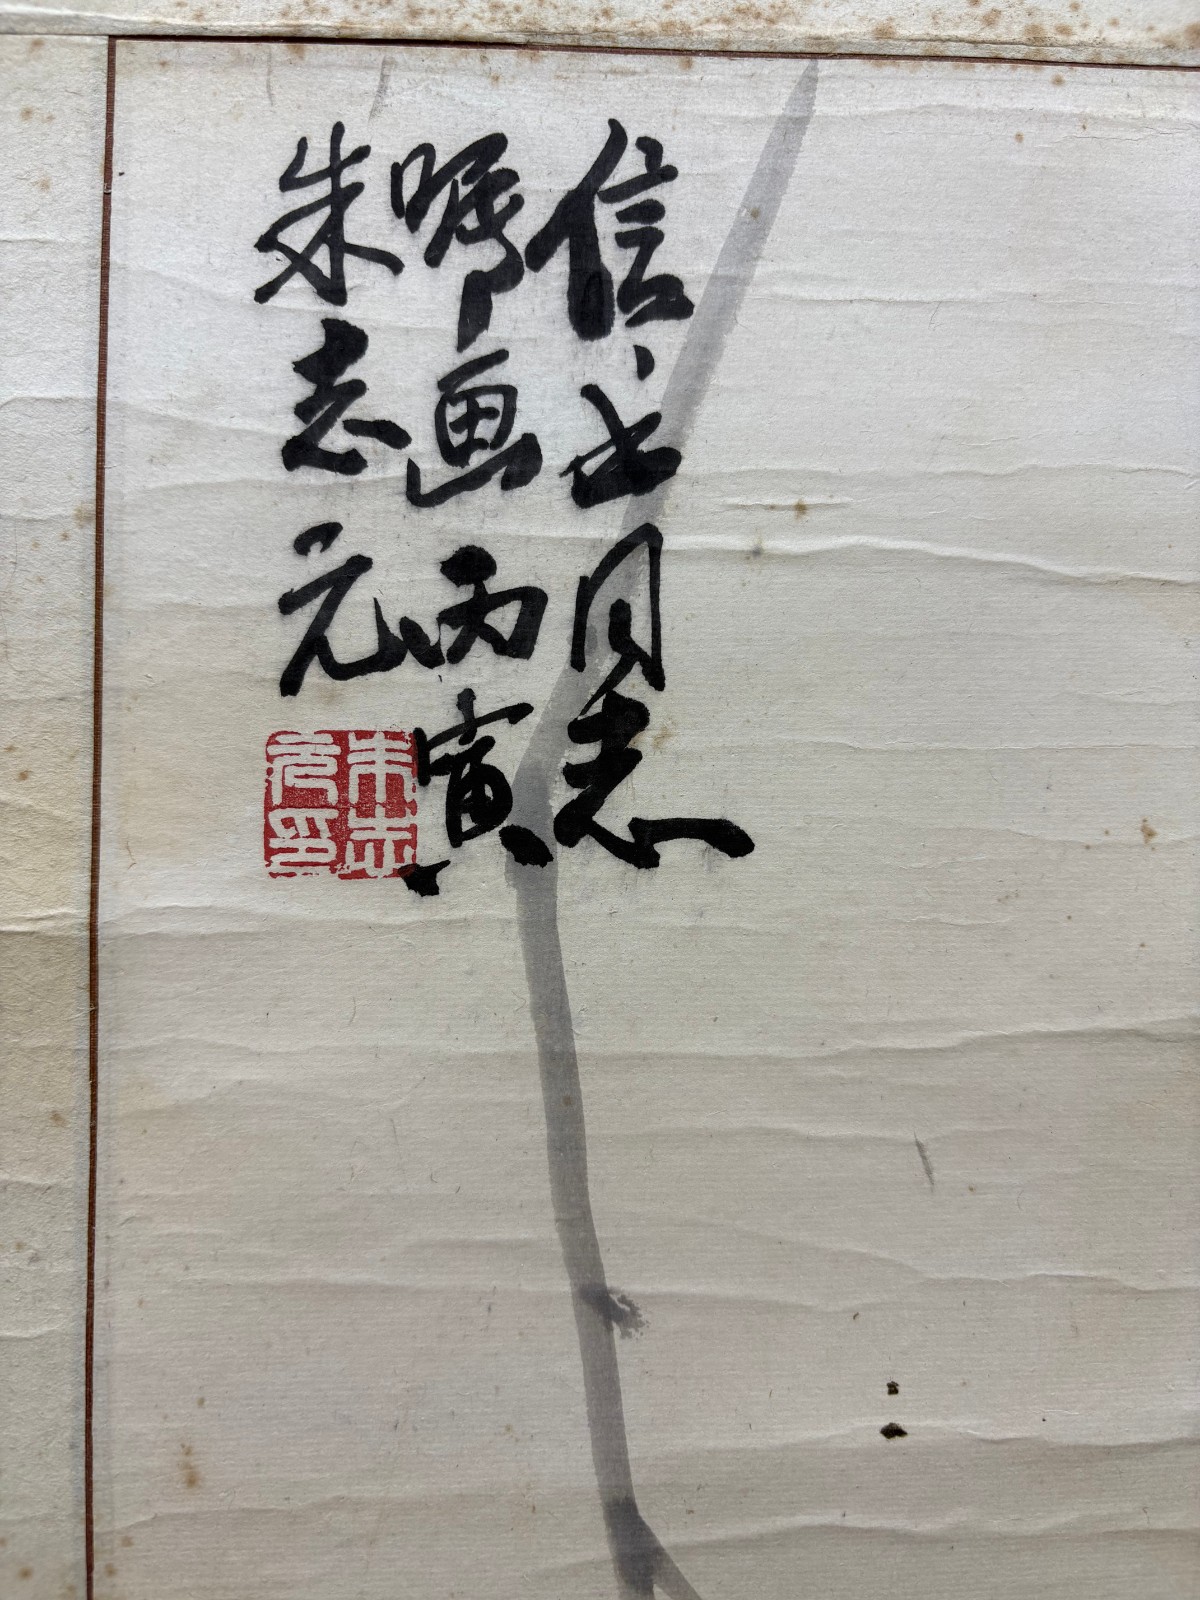 信之同志
嘱画丙寅
朱志元
朱志元印